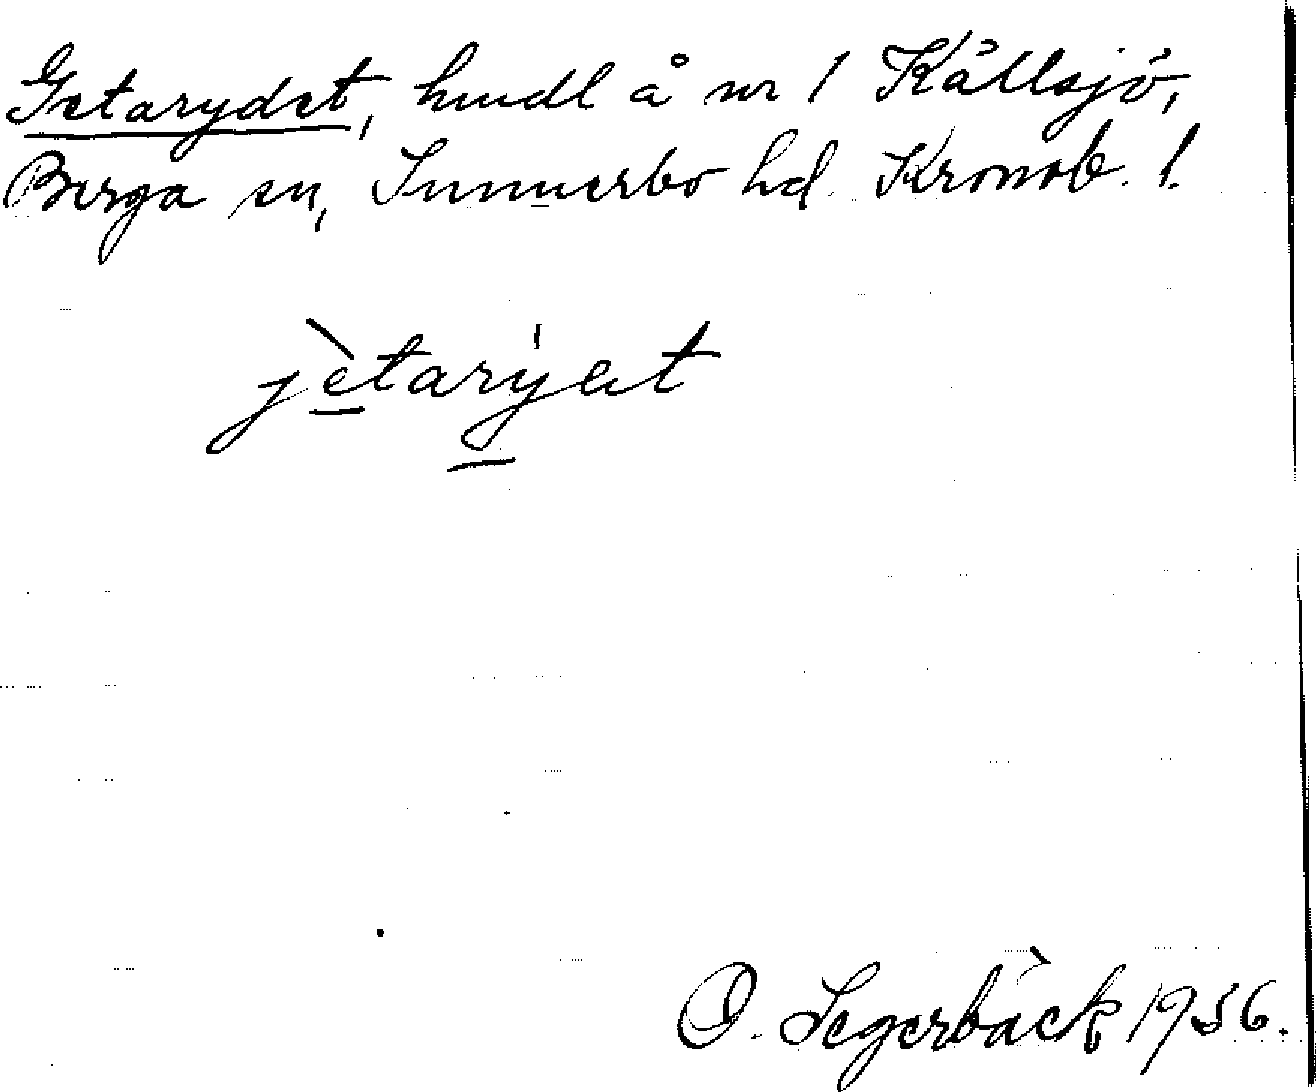 Getarydet, hmdl å nr 1 Källsjö,
Berga sn, Sunnerbo hd. Kronob. l.
jètarýet
O. Segerbäck 1956.